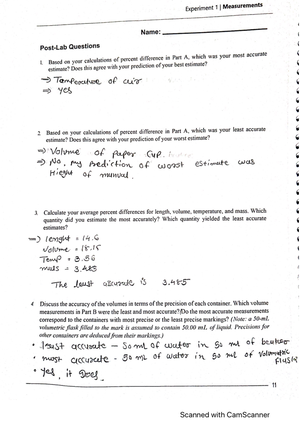 Experiment 1 | Measurements
Name:
Post-Lab Questions
1. Based on your calculations of percent difference in Part A, which was your most accurate
estimate? Does this agree with your prediction of your best estimate?
⇒ Temperature of air
⇒ Yes
2. Based on your calculations of percent difference in Part A, which was your least accurate
estimate? Does this agree with your prediction of your worst estimate?
⇒ Volume of Paper Cup.
⇒ No, my Prediction of worst estimate was
Hight of manual.
3. Calculate your average percent differences for length, volume, temperature, and mass. Which
quantity did you estimate the most accurately? Which quantity yielded the least accurate
estimates?
⇒ lenght = 14.6
Volume = 18.15
Temp = 3.56
mass = 3.485
The least accurate is 3.485
4 Discuss the accuracy of the volumes in terms of the precision of each container. Which volume
measurements in Part B were the least and most accurate? Do the most accurate measurements
correspond to the containers with most precise or the least precise markings? (Note: a 50-mL
volumetric flask filled to the mark is assumed to contain 50.00 mL of liquid. Precisions for
other containers are deduced from their markings.)
• least accurate - 50 mL of water in 50 mL of beaker
• most accurate - 50 mL of water in 50 mL of Volumetric
flask
• Yes, it Does.
11
Scanned with CamScanner